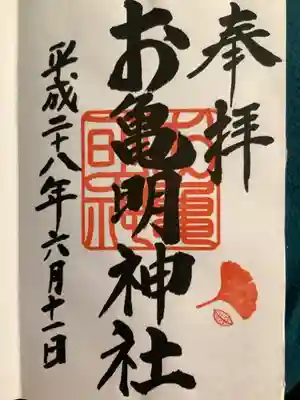 奉拝
お亀明神社
平成二十八年六月十一日